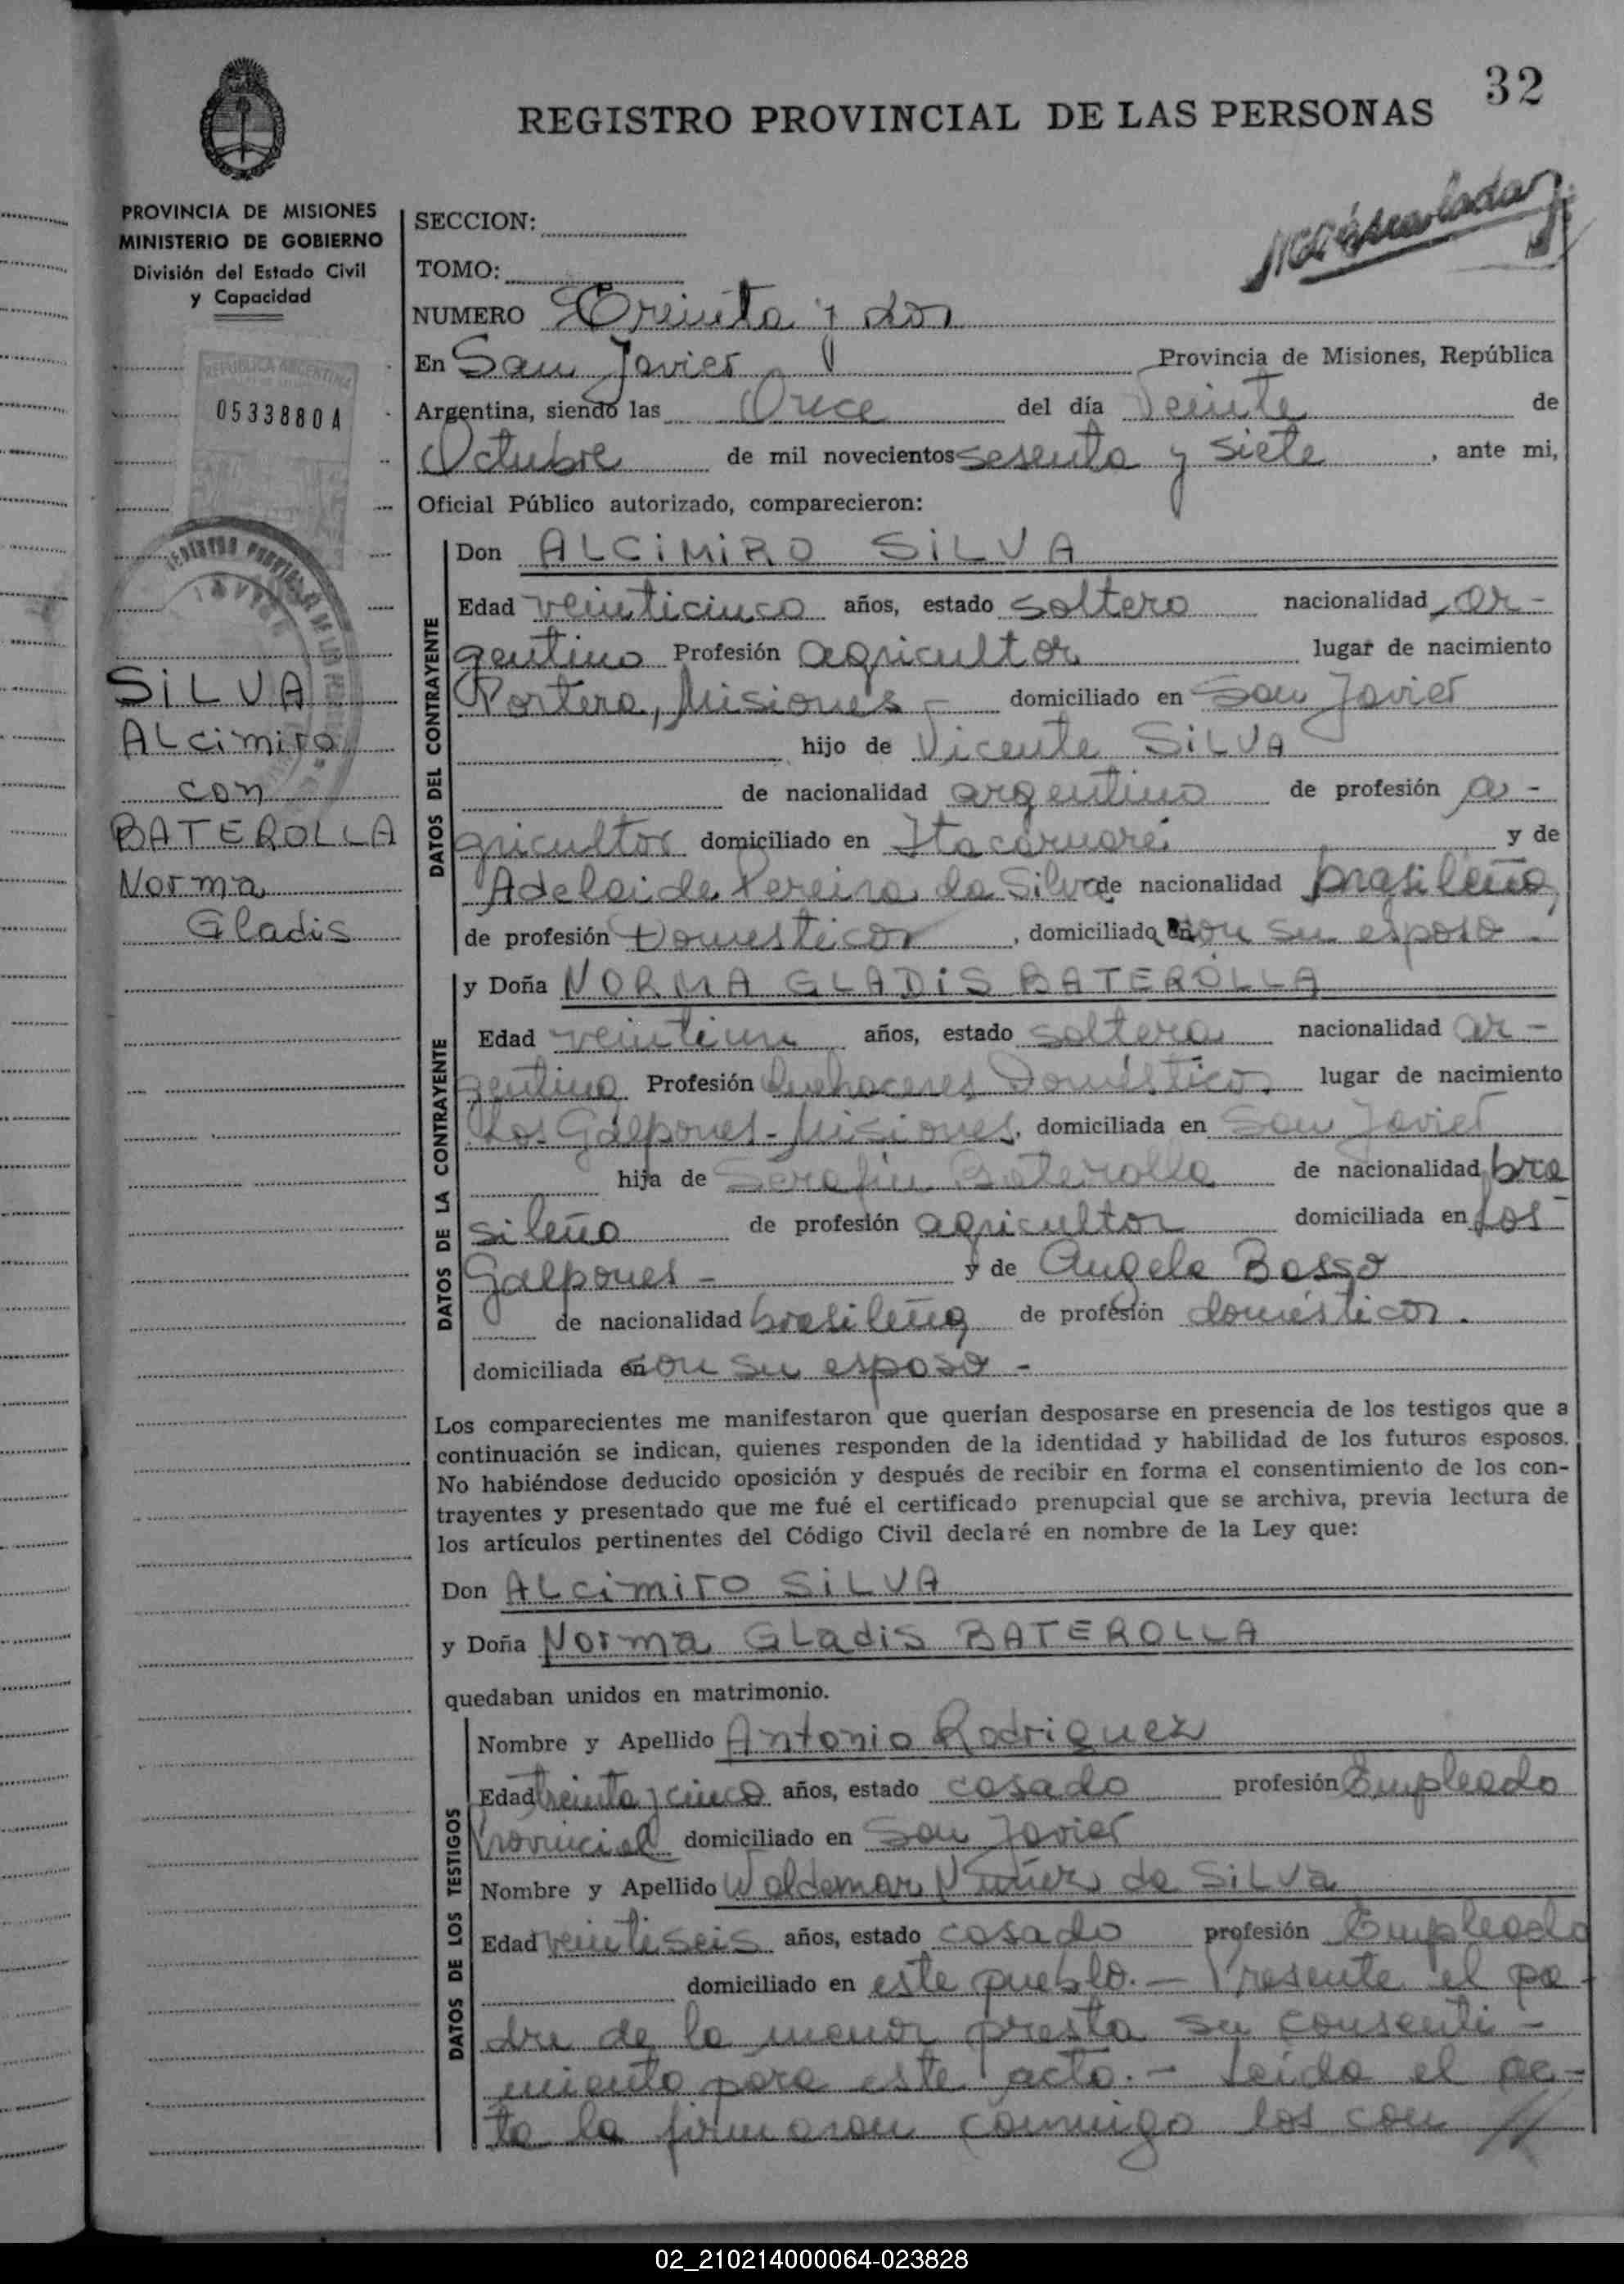 32
REGISTRO PROVINCIAL DE LAS PERSONAS
PROVINCIA DE MISIONES
MINISTERIO DE GOBIERNO
División del Estado Civil
y Capacidad
REPUBLICA ARGENTINA
05338804
SILVA
Alcimiro
con
BATEROLLA
Norma
Gladis
SECCION:
TOMO:
NUMERO Treinta y dos
En San Javier Provincia de Misiones, República
Argentina, siendo las Once del día Veinte de
Octubre de mil novecientos sesenta y siete, ante mi,
Oficial Público autorizado, comparecieron:
DATOS DEL CONTRAYENTE
Don ALCIMIRO SILVA
Edad veinticinco años, estado soltero nacionalidad ar-
gentino Profesión agricultor lugar de nacimiento
Portera, Misiones - domiciliado en San Javier
hijo de Vicente SILVA
de nacionalidad argentino de profesión a-
gricultor domiciliado en Itacaruaré y de
Adelaide Pereira da Silva de nacionalidad brasileña,
de profesión Domesticos, domiciliado con su esposo -
DATOS DE LA CONTRAYENTE
y Doña NORMA GLADIS BATEROLLA
Edad veintiun años, estado soltera nacionalidad ar-
gentina Profesión Quehaceres Domésticos lugar de nacimiento
Los Galpones - Misiones, domiciliada en San Javier
hija de Serafin Baterolla de nacionalidad bra
sileño de profesión agricultor domiciliada en Los
Galpones - y de Angela Basso
de nacionalidad brasileña de profesión domésticos.
domiciliada en con su esposo -
Los comparecientes me manifestaron que querían desposarse en presencia de los testigos que a
continuación se indican, quienes responden de la identidad y habilidad de los futuros esposos.
No habiéndose deducido oposición y después de recibir en forma el consentimiento de los con-
trayentes y presentado que me fué el certificado prenupcial que se archiva, previa lectura de
los artículos pertinentes del Código Civil declaré en nombre de la Ley que:
Don Alcimiro SILVA
y Doña Norma Gladis BATEROLLA
quedaban unidos en matrimonio.
DATOS DE LOS TESTIGOS
Nombre y Apellido Antonio Rodriguez
Edad treinta y cinco años, estado casado profesión Empleado
Provincial domiciliado en San Javier
Nombre y Apellido Waldemar Nuñez da Silva
Edad veintiseis años, estado casado profesión Empleado
domiciliado en este pueblo. - Presente el pa-
dre de la menor presta su consenti-
miento para este acto. - Leída el ac-
ta la firmaron conmigo los con //
02_210214000064-023828